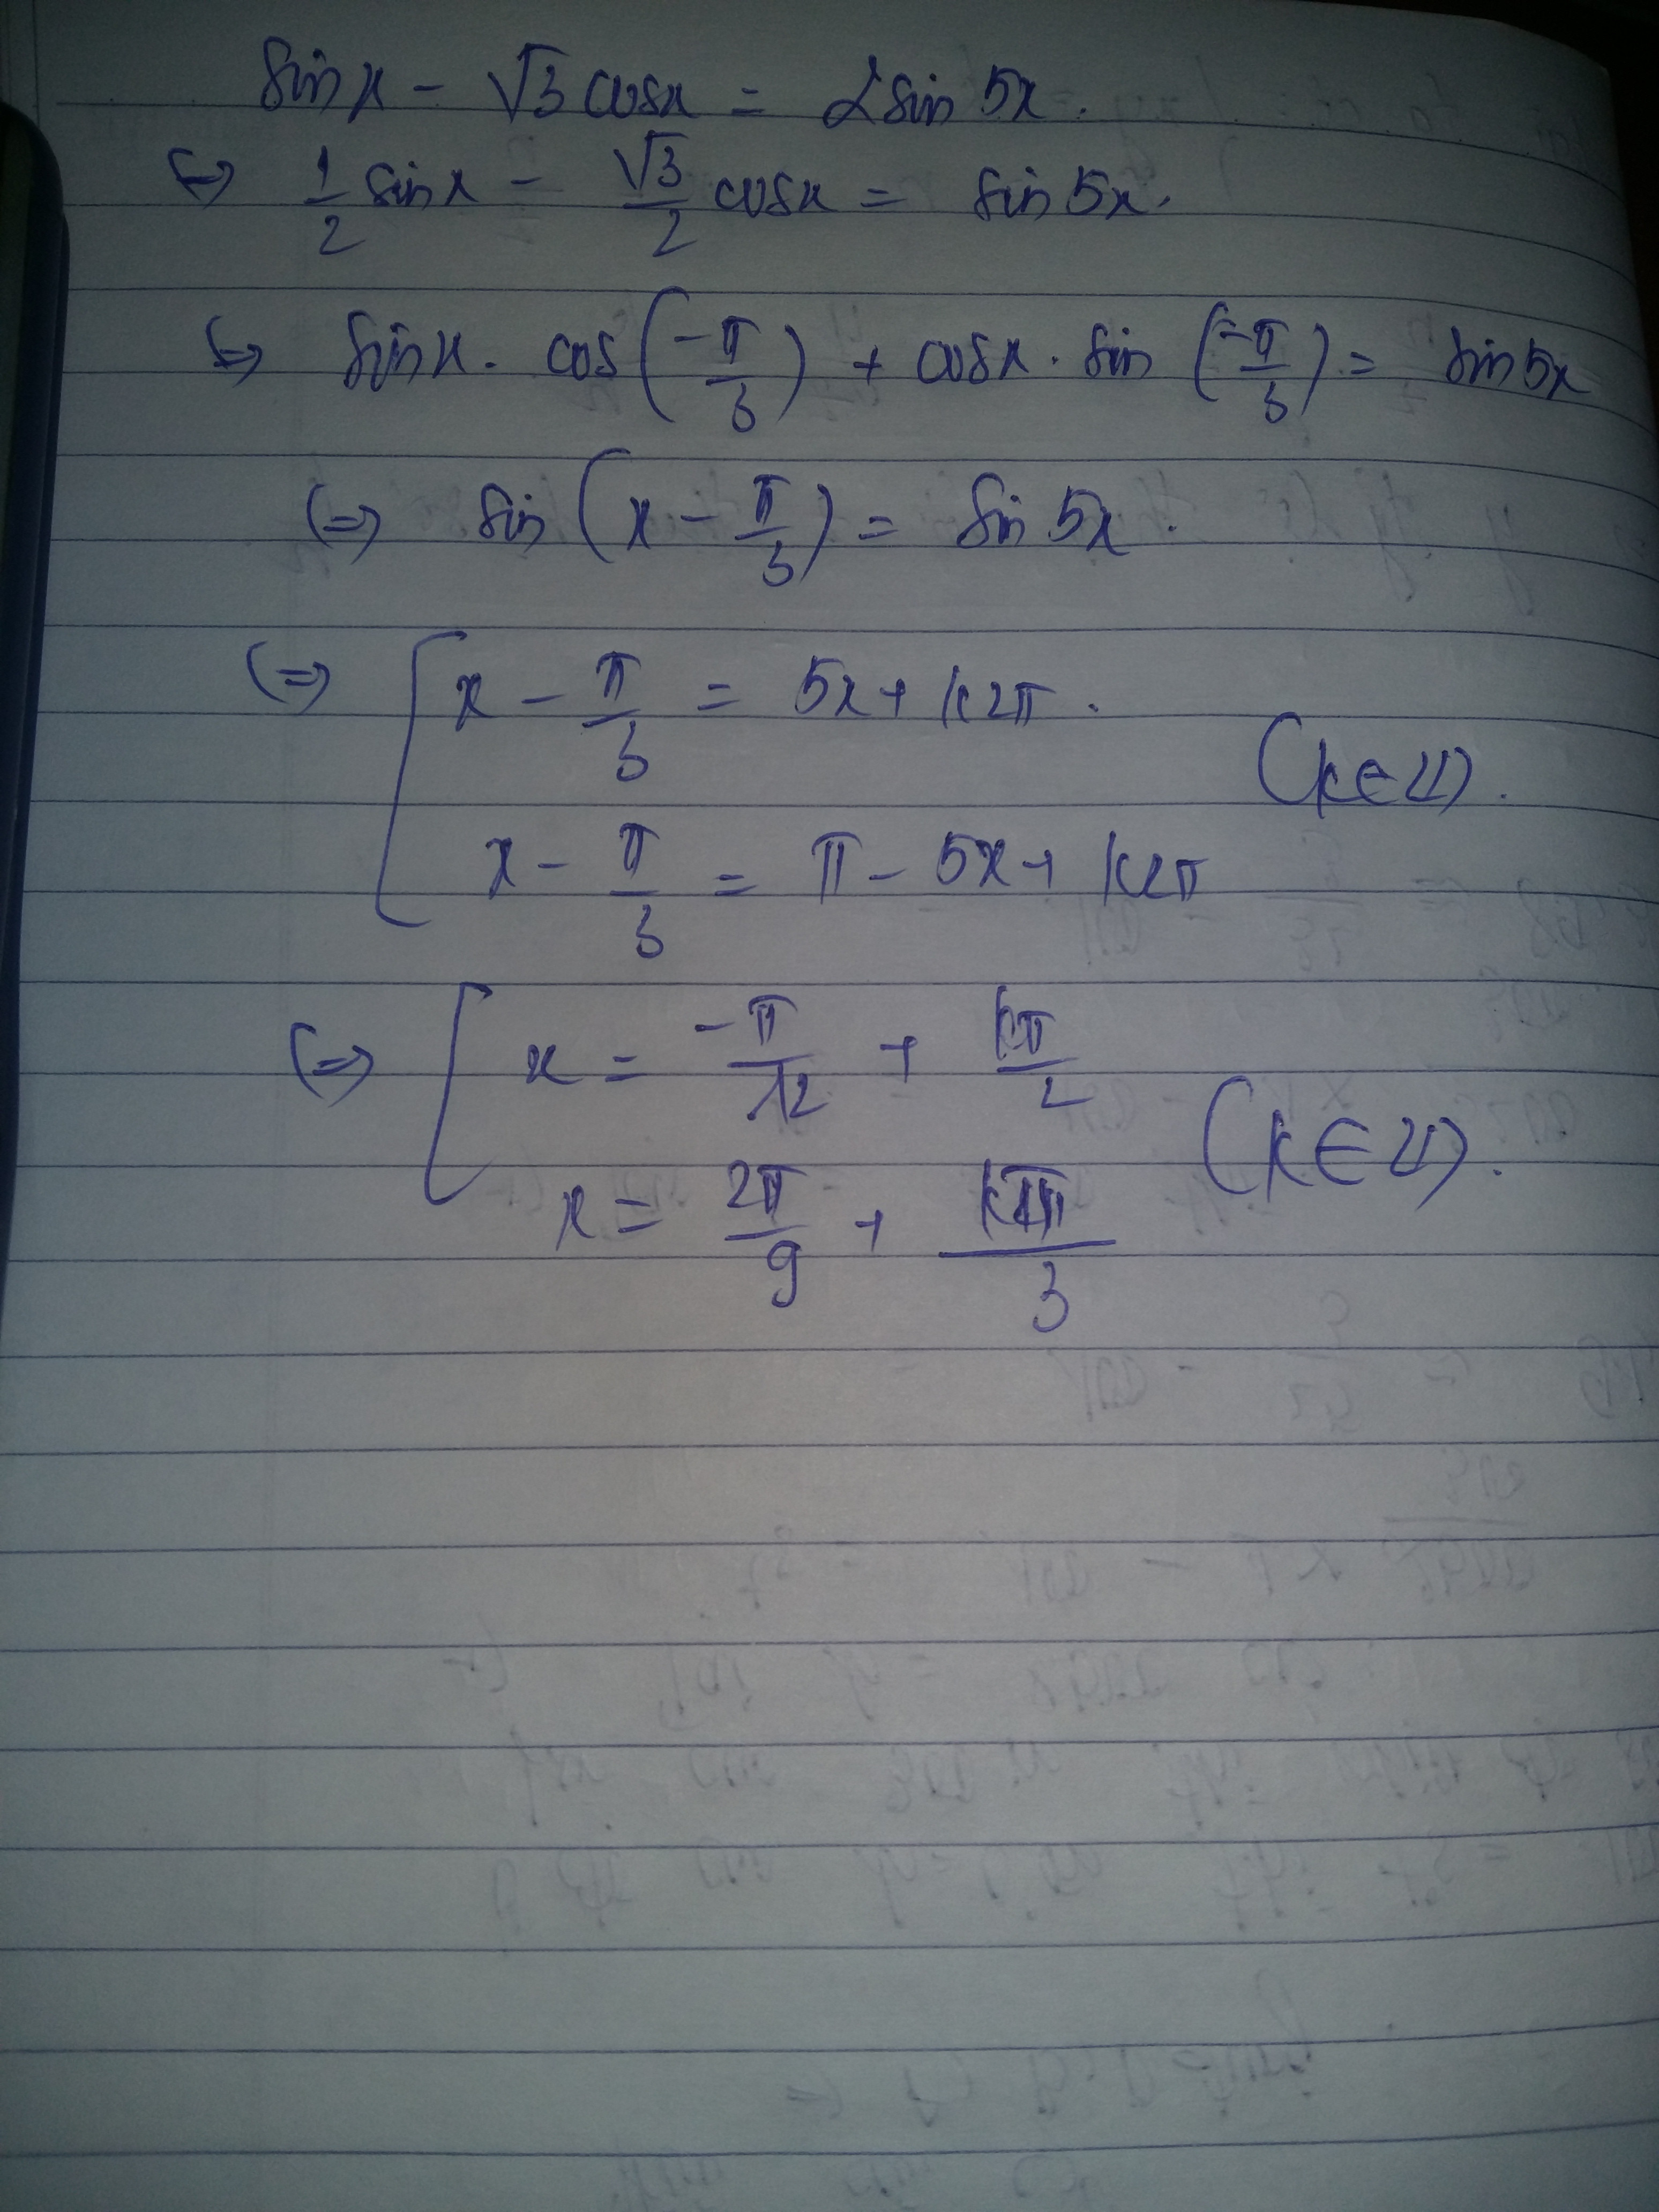 sin x - √3 cos x = 2 sin 5x.
⇔ 1/2 sin x - √3/2 cos x = sin 5x.
⇔ sin x . cos(-π/3) + cos x . sin(-π/3) = sin 5x
⇔ sin(x - π/3) = sin 5x.
⇔ [ x - π/3 = 5x + k2π.
(k ∈ Z).
x - π/3 = π - 5x + k2π
⇔ [ x = -π/12 + kπ/2
(k ∈ Z).
x = 2π/9 + kπ/3